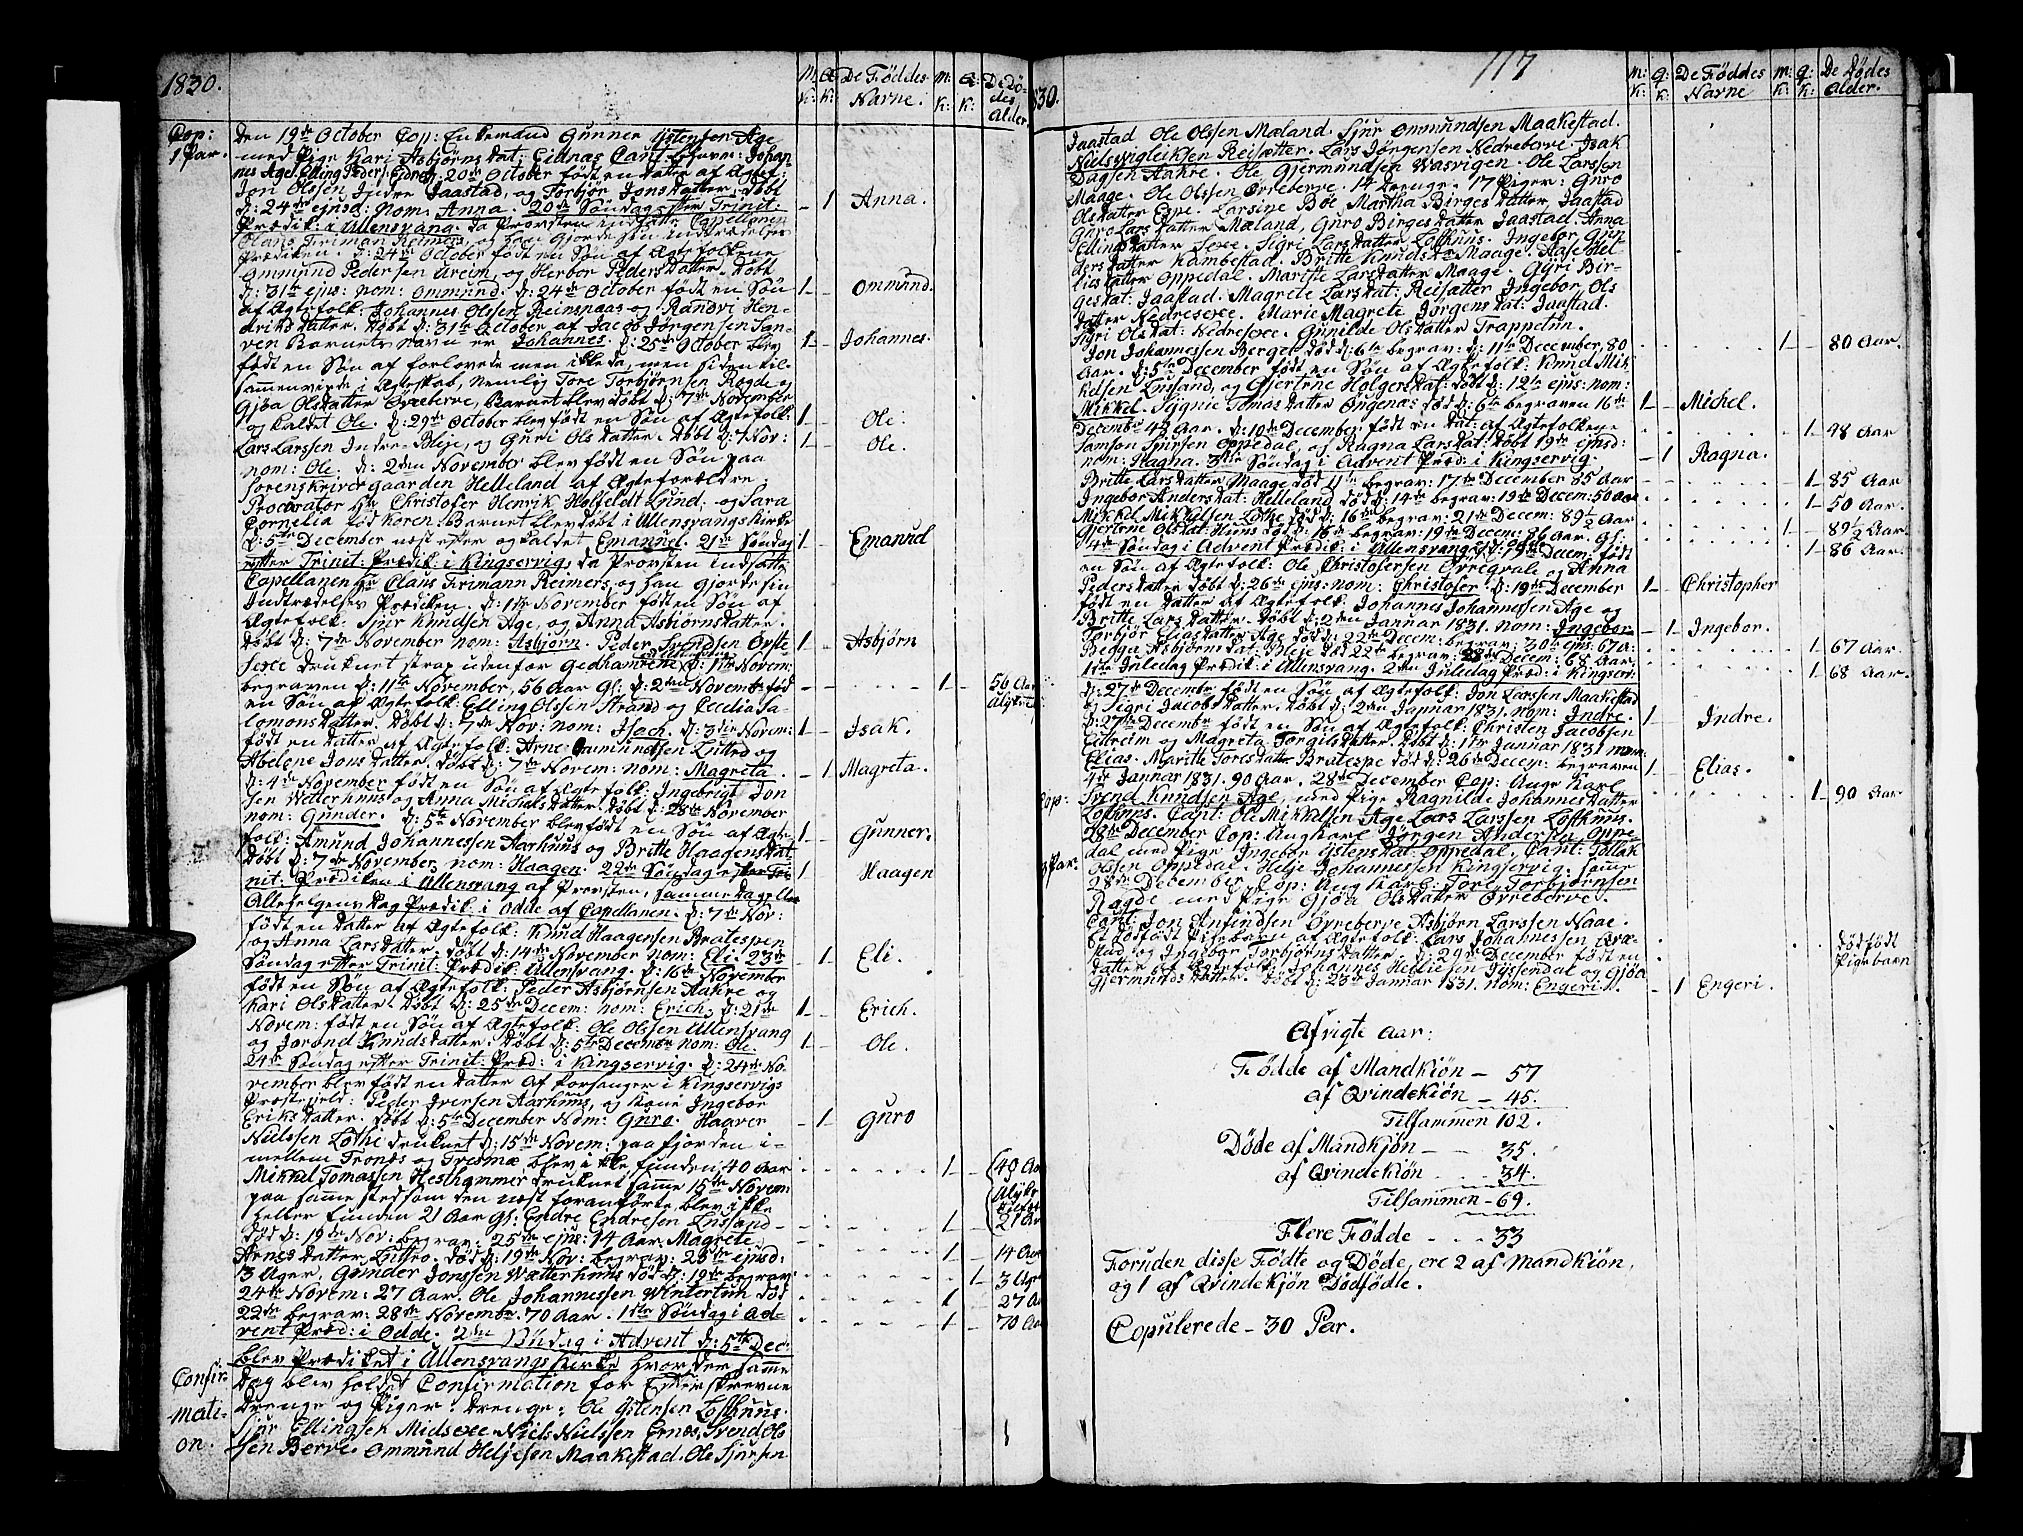 1830.
M: K:
Q: K:
De Føddes Navne.
M: K:
Q: K:
De Dødes Alder
Cop:
1 Par.
Den 19de October Cop: Enkemand Gunner Ystensen Age
med Pige Kari Asbjørnsdat: Eidnæs Caut.
nes Age. Elling Peders. Eidnes. d: 20de October født en Datter af Ægtef:
Jon Olssen Indre Jaastad, og Torbjør Jonsdatter. Døbt
d: 24de ejusd: nom: Anna. 20de Søndag efter Trinit:
Prædik: i Ullensvang, da Provsten indsatte Capellanen
Claus Friman Reimers, og han gjorde sin Indtrædelses
Prædiken. d: 24de October født en Søn af Ægtefolkene
Ommund Pedersen Ureim, og Herbor Pedersdatter. Døbt
d: 31te ejus: nom: Ommund. d: 24de October født en Søn
af Ægtefolk: Johannes Olssen Reinsnaas og Randvi Hen-
driksdatter. Døbt d: 31te October af Jacob Jørgensen San-
ven Barnets navn er Johannes. d: 25de October blev
født en Søn af forlovede men ikke da, men siden til-
sammenviede i Ægteskab, nemlig Tore Torbjørnsen Ragde og
Gjøa Olsdatter Øvreberve, Barnet blev døbt d: 7de November
og kaldet Ole. d: 29de October blev født en Søn af Ægtefolk:
Lars Larssen Indre Bleje, og Guri Olsdatter. Døbt d: 7 Nov:
nom: Ole. d: 2den November blev født en Søn paa
Sorenskrivergaarden Helleland af Ægteforældre
Procurator Hr Christofer Henrik Holfeldt Lund, og Sara
Cornelia fød Koren. Barnet blev døbt i Ullensvangs Kirke
d: 5te December næst efter og kaldet Emanuel. 21de Søndag
efter Trinit: Prædik: i Kingservig, da Provsten indsatte
Capellanen Hr Claus Frimann Reimers, og han gjorde sin
Indtrædelses Prædiken. d: 1ste November født en Søn af
Ægtefolk: Sjur Knudsen Age, og Anna Asbjørnsdatter.
Døbt d: 7de November nom: Asbjørn. Peder Svendsen Øvste-
sexe druknet strax udenfor Gedhamren d: 1ste Novem:
begraven d: 11te November, 56 Aar Gl: d: 2den Novembr fød
en Søn af Ægtefolk: Elling Olssen Strand og Cecelia Sa-
lomonsdatter. Døbt d: 7de Nov: nom: Isach. d: 3die Novem:
født en Datter af Ægtefolk: Arne Ommundsen Lutro og
Abelone Jonsdatter. Døbt d: 7de Novem: nom: Magreta.
d: 4de November født en Søn af Ægtefolk: Ingebrigt Jon
sen Wetterhuus og Anna Michelsdatter. Døbt d: 28de November
nom: Gunder. d: 5te November blev født en Søn af Ægte
folk: Amund Johannessen Aarhuus og Britte Haagensdat:
Døbt d: 7de November, nom: Haagen. 22de Søndag efter Tri-
nit: Prædiken i Ullensvang af Provsten, samme Dag eller
Allehelgensdag Prædik: i Odde af Capellanen. d: 7de Nov:
født en Datter af Ægtefolk: Knud Haagensen Bratespen
og Anna Larsdatter. Døbt d: 14de November nom: Eli. 23de
Søndag efter Trinit: Prædik: Ullensvang. d: 16de November
født en Søn af Ægtefolk: Peder Asbjørnsen Aakre og
Kari Olsdatter. Døbt d: 25de Decem: nom: Erich. d: 21de
Novem: født en Søn af Ægtefolk: Ole Olsen Ullensvang
og Jorond Knudsdatter. Døbt d: 5te Decembr nom: Ole.
24de Søndag efter Trinit: Præd: i Kingservig. d: 24de No-
vember blev født en Datter af Forsanger i Kingservigs
Præstegjeld: Peder Iversen Aarhuus, og Kone Ingebor
Eriksdatter. Døbt d: 5te December Nom: Guro. Haaver
Nielssen Lothe druknet d: 15de Novem: paa Fjorden i-
mellem Tronæs og Tresnæ, blev ikke funden, 40 Aar
Mikkel Tomassen Hesthammer druknet samme 15de Novem
paa samme sted som den næst foranførte, blev ikke
heller funden 21 Aar Gl: Endre Endresen Lussand
Død d: 19de Nov: begrav: 25de ejus: 14 Aar. Magrete
Arnesdatter Lutro. Død d: 19de Nov: begrav: 28de ejusd:
3 Uger. Gunder Jonssen Wætterhuus død d: 19de begrav:
24de Novem: 27 Aar. Ole Johannessen Wintertun død
22de begrav: 28de Novembr. 70 Aar. 1ste Søndag i Ad-
vent Præd: i Odde. 2den Søndag i Advent d: 5te Dec:
blev Prædiket i Ullensvangs Kirke hvor der samme
Confir-
mati-
on.
Dag blev holdet Confirmation for Efterskrevne
Drenge og Piger. Drenge: Ole Ystensen Lofthuus.
Sjur Ellingsen Midsexe. Niels Nielssen Ernæs, Svend Ol-
sen Berve. Ommund Heljesen Maakestad. Ole Sjursen
- 1 Anna.
1 - Ommund.
1 - Johannes.
1 - Ole.
1 - Ole.
1 - Emanuel
1 - Asbjørn
1 - 56 Aar
1 - Isak.
- 1 Magreta.
1 - Gunner.
1 Haagen
- 1 - Eli.
1 - Erich.
1 - Ole.
- 1 - Guro
1 - (40 Aar
1 - 21 Aar
1 - 14 Aar
1 - 3 Uger
1 - 27 Aar
1 - 70 Aar
830.
117
M: K:
Q: K:
De Føddes Navne
M: K:
Q: K:
De Dødes Alder.
Jaastad Ole Olssen Mæland. Sjur Ommundsen Maakestad.
Niels Wigleiksen Reisæter. Lars Jørgensen Nedreberve. Isak
Dagsen Aakre. Ole Gjermundsen Wasvigen. Ole Larssen
Maage. Ole Olssen Øvreberve. 14 Drenge. 17 Piger: Guro
Olsdatter Espe. Larsine Bøe Martha Birgesdatter, Jaastad
Guro Larsdatter Mæland, Guro Birgesdatter Jaastad. Anna
Ellingsdatter Sexe. Sigri Larsdatter Lofthuus. Ingebor Gun
dersdatter Kambestad. Britte Knudsdtr Maage. Aase Hel-
liesdatter Oppedal. Maritte Larsdatter Maage. Gyri Bir-
gesdat: Jaastad. Magrete Larsdat: Reisæter Ingebor, Ols
datter Nedresexe. Marie Magrete Jørgensdat: Jaastad.
Sigri Olsdat: Nedresexe. Gunilde Olsdatter Trappetun.
Jon Johannessen Berge død d: 6te begrav: d: 11te December, 80
Aar. d: 5te December født en Søn af Ægtefolk: Knud Mik-
kelsen Lusand, og Gjertrue Holgersdat: døbt d: 12te ejus: nom:
Mikkel. Sygnie Tomasdatter Eugenæs død d: 6te begraven 16de
Decembr 48 Aar. d: 10de December født en Dat: af Ægtefolkene
Samson Sjursen Oppedal, og Ragna Larsdat: Døbt 19de ejusd:
nom: Ragna. 3die Søndag i Advent Præd: i Kingservig.
Britte Larsdatter Maage død 11te begrav: 17de December 85 Aar
Ingebor Andersdat: Helleland død d: 14de begrav: 19de Decem: 50 Aar
Mikkel Mikkelsen Lothe død d: 16de begrav: 21de Decem: 89 1/2 Aar
Gjertrue Olsdat: Huus død d: 16de begrav: 19de Decem: 86 Aar. Gl:
4de Søndag i Advent Prædik: i Ullensvang d: 19de Decem: født
en Søn af Ægtefolk: Ole Christofersen Ørregvale og Anna
Pedersdatter Døbt d: 26de ejus: nom: Christofer. d: 19de December
født en Datter af Ægtefolk: Johannes Johannessen Age og
Britte Larsdatter. Døbt d: 2den Januar 1831. nom: Ingebor
Torbjør Eliasdatter Age død d: 22de Decem: begrav: 30te ejus: 67 A:
Begga Asbjørnsdat: Bleje død 22de begrav: 28de Decem: 68 Aar.
1ste Juledag Prædik: i Ullensvang. 2den Juledag Præd: i Kingserv:
d: 27de Decembr født en Søn af Ægtefolk: Jon Larssen Maakestad
og Sigri Jacobsdatter. Døbt d: 2den Januar 1831. nom: Indre.
d: 27de Decembr født en Søn af Ægtefolk: Christen Jacobsen
Eitreim og Magreta Torgilsdatter. Døbt d: 1ste Januar 1831 nom:
Elias. Maritte Toresdatter Bratespe død d: 26de Decem: begraven
4de Januar 1831. 90 Aar. 28de December Cop: Unge Karl
Cop:
Svend Knudsen Age, med Pige Ragnilde Johannesdatter
Lofthuus. Caut: Ole Mikkelsen Age Lars Larssen Lofthuus.
28de December Cop: Ungkarl Jørgen Andersen Oppe-
dal med Pige: Ingebor Ystensdat: Oppedal, Caut: Tollak
3 Par.
Olssen Oppedal. Helje Johannessen Kingservig. samme
28de December Cop: Ungkarl: Tore Torbjørnsen
Ragde med Pige Gjøa Olsdatter Øvreberve.
Caut: Jon Anfindsen Øvreberve Asbjørn Larssen Naae.
Et Dødfødt Pigebarn af Ægtefolk: Lars Johannessen Græ-
stue og Ingebor Torbjørnsdatter. d: 29de December født en
Datter af Ægtefolk: Johannes Helliesen Tyssendal og Gjøa
Gjermundsdatter. Døbt d: 23de Januar 1831. nom: Engeri.
1 - 80 Aar.
1 - Michel.
1 - 48 Aar
- 1 Ragna.
1 - 85 Aar
1 - 50 Aar
1 - 89 1/2 Aar
1 - 86 Aar.
1 - Christopher
- 1 - Ingebor.
1 - 67 Aar
1 - 68 Aar.
1 - Indre.
1 - Elias.
1 - 90 Aar
Dødfødt
Pigebarn
- 1 Engeri.
Afvigte Aar:
Fødde af Mandkiøn - 57
af Qvindekiøn - 45.
Tilsammen 102.
Døde af Mandkjøn - - 35.
af Qvindekiøn - 34.
Tilsammen - 69.
Flere Fødde - - - 33
Foruden disse Fødte og Døde, ere 2 af Mandkiøn,
og 1 af Qvindekjøn Dødfødte.
Copulerede - 30 Par.